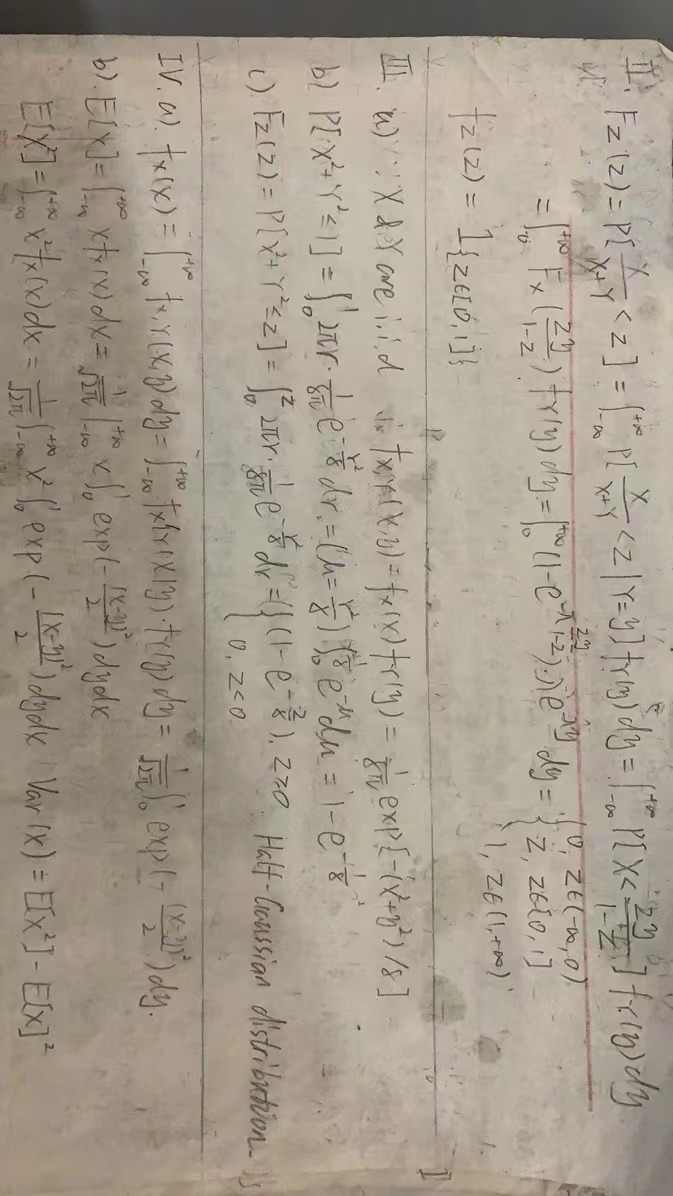 II. F_Z(z) = P[X/(X+Y) < z] = ∫_{-∞}^{+∞} P[X/(X+Y) < z | Y=y] f_Y(y) dy = ∫_{-∞}^{+∞} P[X < zy/(1-z)] f_Y(y) dy
= ∫_0^{+∞} F_X(zy/(1-z)) f_Y(y) dy = ∫_0^{+∞} (1-e^{-λ zy/(1-z)})·λe^{-λy} dy = { 0, z∈(-∞,0)
z, z∈[0,1]
1, z∈(1,+∞)
f_Z(z) = 1{z∈[0,1]}
III. a) ∵ X & Y are i.i.d ∴ f_{X,Y}(x,y) = f_X(x) f_Y(y) = 1/(8π) exp[-(x²+y²)/8]
b) P[X²+Y²≤1] = ∫_0^1 2πr · 1/(8π) e^{-r²/8} dr = (u=r²/8) ∫_0^{1/8} e^{-u} du = 1-e^{-1/8}
c). F_Z(z) = P[X²+Y²≤z] = ∫_0^z 2πr · 1/(8π) e^{-r²/8} dr = { (1-e^{-z/8}), z≥0 Half-Gaussian distribution
0, z<0
IV. a). f_X(x) = ∫_{-∞}^{+∞} f_{X,Y}(x,y) dy = ∫_{-∞}^{+∞} f_{X|Y}(x|y)·f_Y(y) dy = 1/√(2π) ∫_0^1 exp(-(x-y)²/2) dy.
b). E[X] = ∫_{-∞}^{+∞} x f_X(x) dx = 1/√(2π) ∫_{-∞}^{+∞} x ∫_0^1 exp(-(x-y)²/2) dy dx
E[X²] = ∫_{-∞}^{+∞} x² f_X(x) dx = 1/√(2π) ∫_{-∞}^{+∞} x² ∫_0^1 exp(-(x-y)²/2) dy dx Var(X) = E[X²] - E[X]²